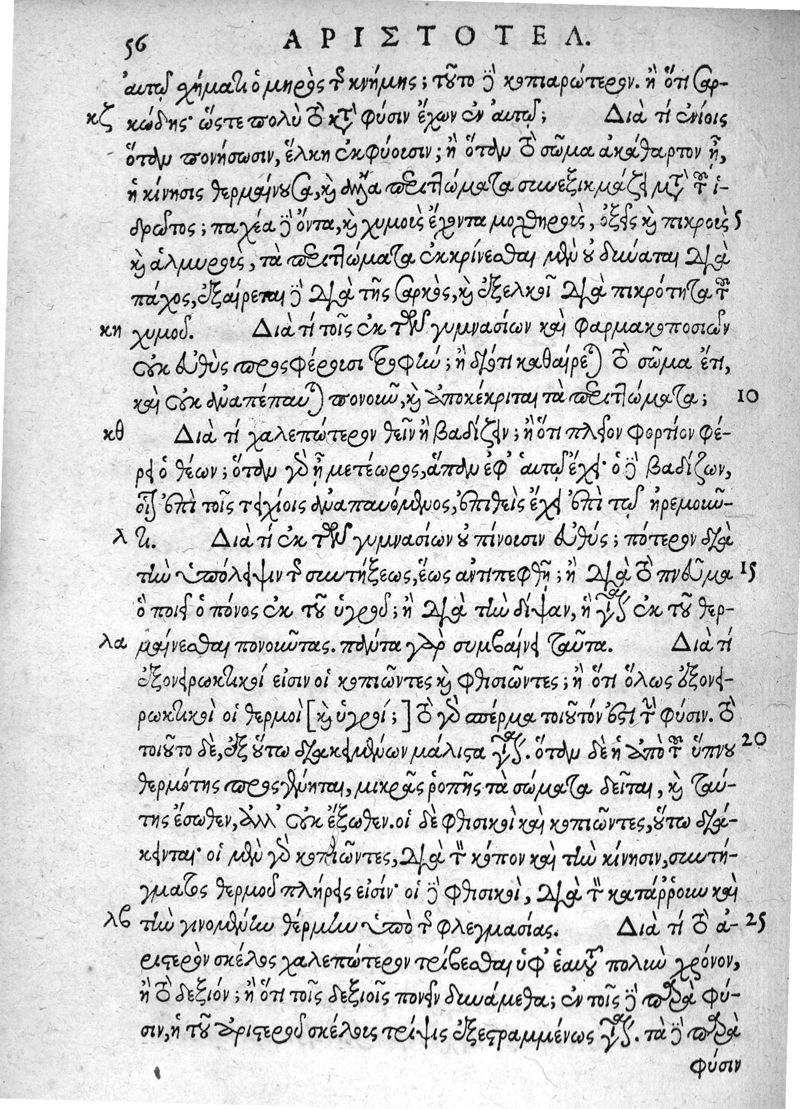 56 ΑΡΙΣΤΟΤΕΛ.
αυτῷ χήματι ὁ μηρὸς τῆς κνήμης; τοῦτο δὲ κοπιαρώτερον. ἢ ὅτι σαρ-
κζ κώδης· ὥστε πολὺ τὸ κατὰ φύσιν ἔχων ἐν αὑτῷ; Διὰ τί ἐνίοις
ὅταν πονήσωσιν, ἕλκη ἐκφύουσιν; ἢ ὅταν τὸ σῶμα ἀκάθαρτον ᾖ,
ἡ κίνησις θερμαίνουσα, καὶ ἄλλα περιττώματα συνεξικμάζει μετὰ τοῦ ἱ-
δρῶτος; παχέα δὲ ὄντα, καὶ χυμοὺς ἔχοντα μοχθηροὺς, ὀξεῖς καὶ πικροὺς 5
καὶ ἁλμυροὺς, τὰ περιττώματα ἐκκρίνεσθαι μὲν οὐ δύναται διὰ
πάχος, ἐξαίρεται δὲ διὰ τῆς σαρκὸς, καὶ ἐξελκοῖ διὰ πικρότητα τοῦ
κη χυμοῦ. Διὰ τί τοῖς ἐκ τῶν γυμνασίων καὶ φαρμακοποσιῶν
οὐκ εὐθὺς προσφέρουσι τροφήν; ἢ διότι καθαίρεται τὸ σῶμα ἔτι,
καὶ οὐκ ἀναπέπαυται πονοῦν, καὶ ἀποκέκριται τὰ περιττώματα; 10
κθ Διὰ τί χαλεπώτερον θεῖν ἢ βαδίζειν; ἢ ὅτι πλεῖον φορτίον φέ-
ρει ὁ θέων; ὅταν γὰρ ᾖ μετέωρος, ἅπαν ἐφ’ αὑτῷ ἔχει· ὁ δὲ βαδίζων,
οἷον ἐπὶ τοῖς τειχίοις ἀναπαυόμενος, ἐπιθεὶς ἔχει ἐπὶ τῷ ἠρεμοῦν-
λ τι. Διὰ τί ἐκ τῶν γυμνασίων οὐ πίνουσιν εὐθύς; πότερον διὰ
τὴν ὑπόλειψιν τῆς συντήξεως, ἕως ἀντιπεφθῇ; ἢ διὰ τὸ πνεῦμα 15
ὃ ποιεῖ ὁ πόνος ἐκ τοῦ ὑγροῦ; ἢ διὰ τὴν δίψαν, ἣ γίνεται ἐκ τοῦ θερ-
λα μαίνεσθαι πονοῦντας. πάντα γὰρ συμβαίνει ταῦτα. Διὰ τί
ἐξονειρωκτικοί εἰσιν οἱ κοπιῶντες καὶ φθισιῶντες; ἢ ὅτι ὅλως ἐξονει-
ρωκτικοὶ οἱ θερμοὶ [καὶ ὑγροί;] τὸ γὰρ σπέρμα τοιοῦτόν ἐστι τὴν φύσιν. τὸ
τοιοῦτο δὲ, ἐξ οὕτω διακειμένων μάλιστα γίνεται. ὅταν δὲ ἡ ἀπὸ τοῦ ὕπνου 20
θερμότης προσγένηται, μικρᾶς ῥοπῆς τὰ σώματα δεῖται, καὶ ταύ-
της ἔσωθεν, ἀλλ’ οὐκ ἔξωθεν. οἱ δὲ φθισικοὶ καὶ κοπιῶντες, οὕτω διά-
κεινται· οἱ μὲν γὰρ κοπιῶντες, διὰ τὸν κόπον καὶ τὴν κίνησιν, συντή-
γματος θερμοῦ πλήρεις εἰσίν· οἱ δὲ φθισικοὶ, διὰ τὸν κατάῤῥουν καὶ
λβ τὴν γινομένην θέρμην ὑπὸ τῆς φλεγμασίας. Διὰ τί τὸ ἀ- 25
ριστερὸν σκέλος χαλεπώτερον τρίβεσθαι ὑφ’ ἑαυτοῦ πολὺν χρόνον,
ἢ τὸ δεξιόν; ἢ ὅτι τοῖς δεξιοῖς πονεῖν δυνάμεθα; ἐν τοῖς δὲ παρὰ φύ-
σιν, ἡ τοῦ ἀριστεροῦ σκέλους τρίψις ἐξεστραμμένως γίνεται. τὰ δὲ παρὰ
φύσιν